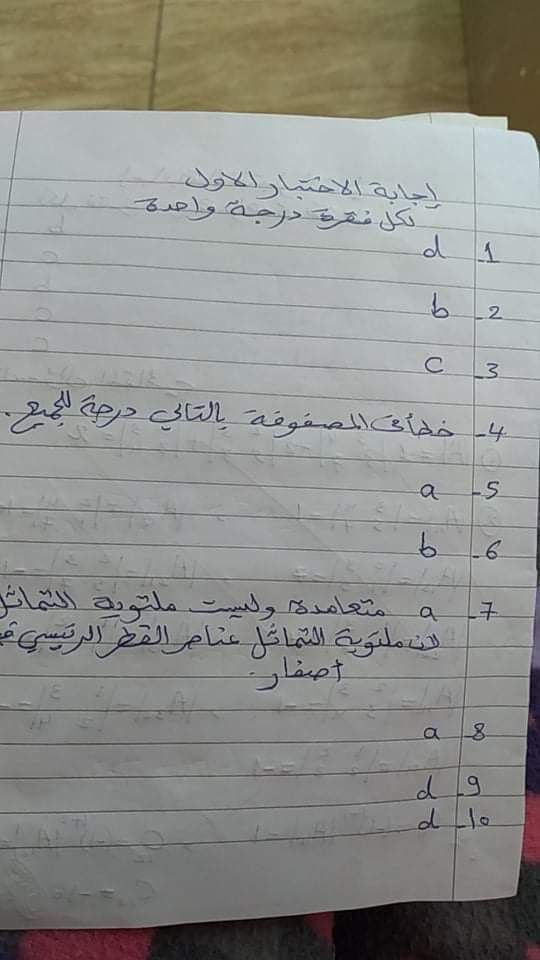 إجابة الاختبار الاول
لكل فقرة درجة واحدة
1- d
2- b
3- c
4- خطأ في المصفوفة بالتالي درجة للجميع.
5- a
6- b
7- a متعامدة وليست ملتوية التماثل
لان ملتوية التماثل عناصر القطر الرئيسي
أصفار.
8- a
9- d
10- d